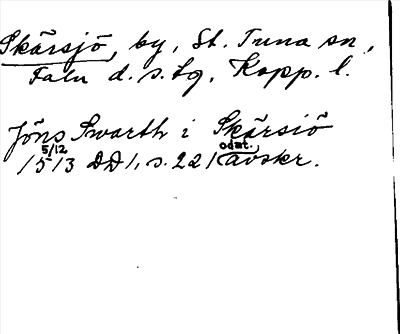 Skärsjö, by, St. Tuna sn,
Falu d.s.tg, Kopp. l.
Jöns Swarth i Skärsiö
5/12 odat.
1513 DD1, s. 221 avskr.